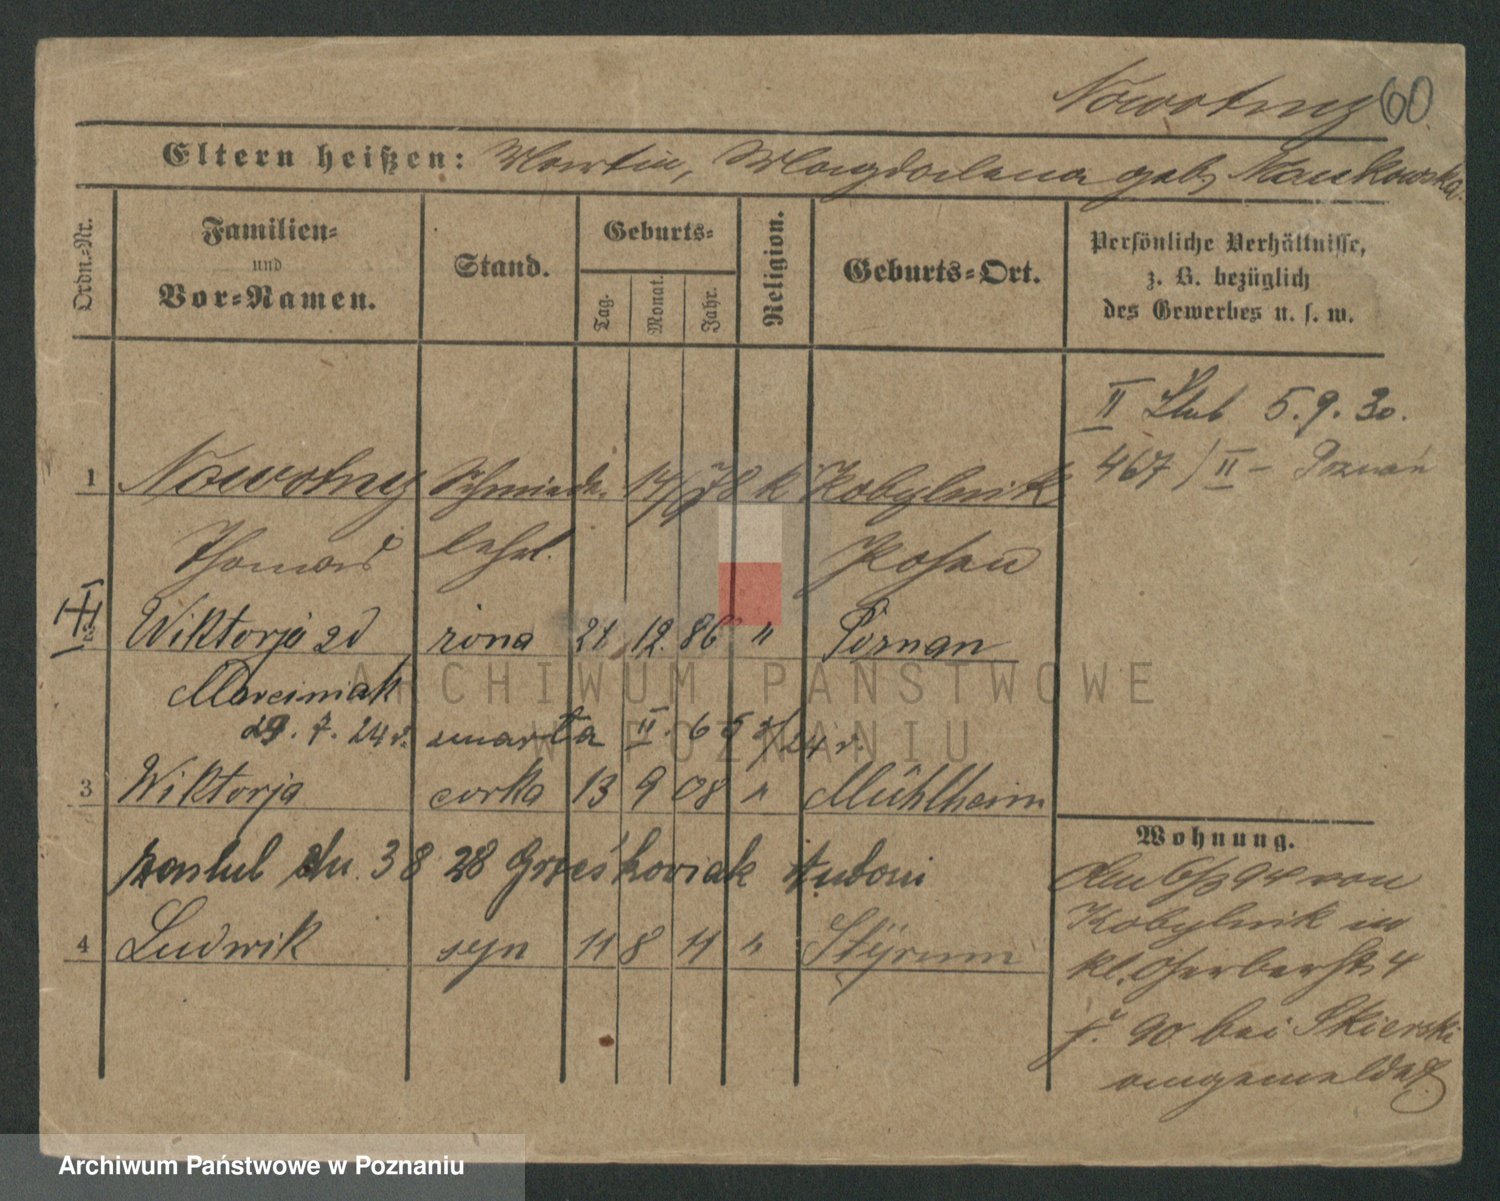 Nowotny 60
Eltern heißen: Martin, Magdalena geb. Mankowska.
Ordn.-Nr.
Familien-
und
Vor-Namen.
Stand.
Geburts-
Tag.
Monat.
Jahr.
Religion.
Geburts-Ort.
Persönliche Verhältnisse,
z. B. bezüglich
des Gewerbes u. s. w.
II Ślub 5.9.30.
467/II – Poznań
1 Nowotny Schmiede- 14/ 78 k Kobylnik
Thomas lehrl. Posen
2 Wiktorja zd żona 21 12. 86 " Poznan
Marciniak
29. 7. 24 r. zmarła II. 24 r.
3 Wiktorja corka 13 9 08 " Mühlheim
zaślub 38 28 Grześkowiak Antoni
4 Ludwik syn 11 8 11 " Styrum
Wohnung.
94 von
Kobylnik in
kl. Gerberstr 4
90 bei Skierski
angemeldet
Archiwum Państwowe
w Poznaniu
Archiwum Państwowe w Poznaniu